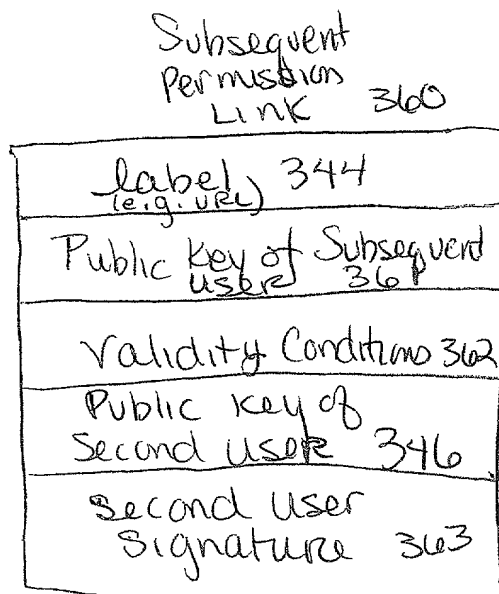 Subsequent
Permission
Link 360
label 344
(e.g. URL)
Public Key of Subsequent
user 361
Validity Conditions 362
Public Key of
Second user 346
second user
signature 363